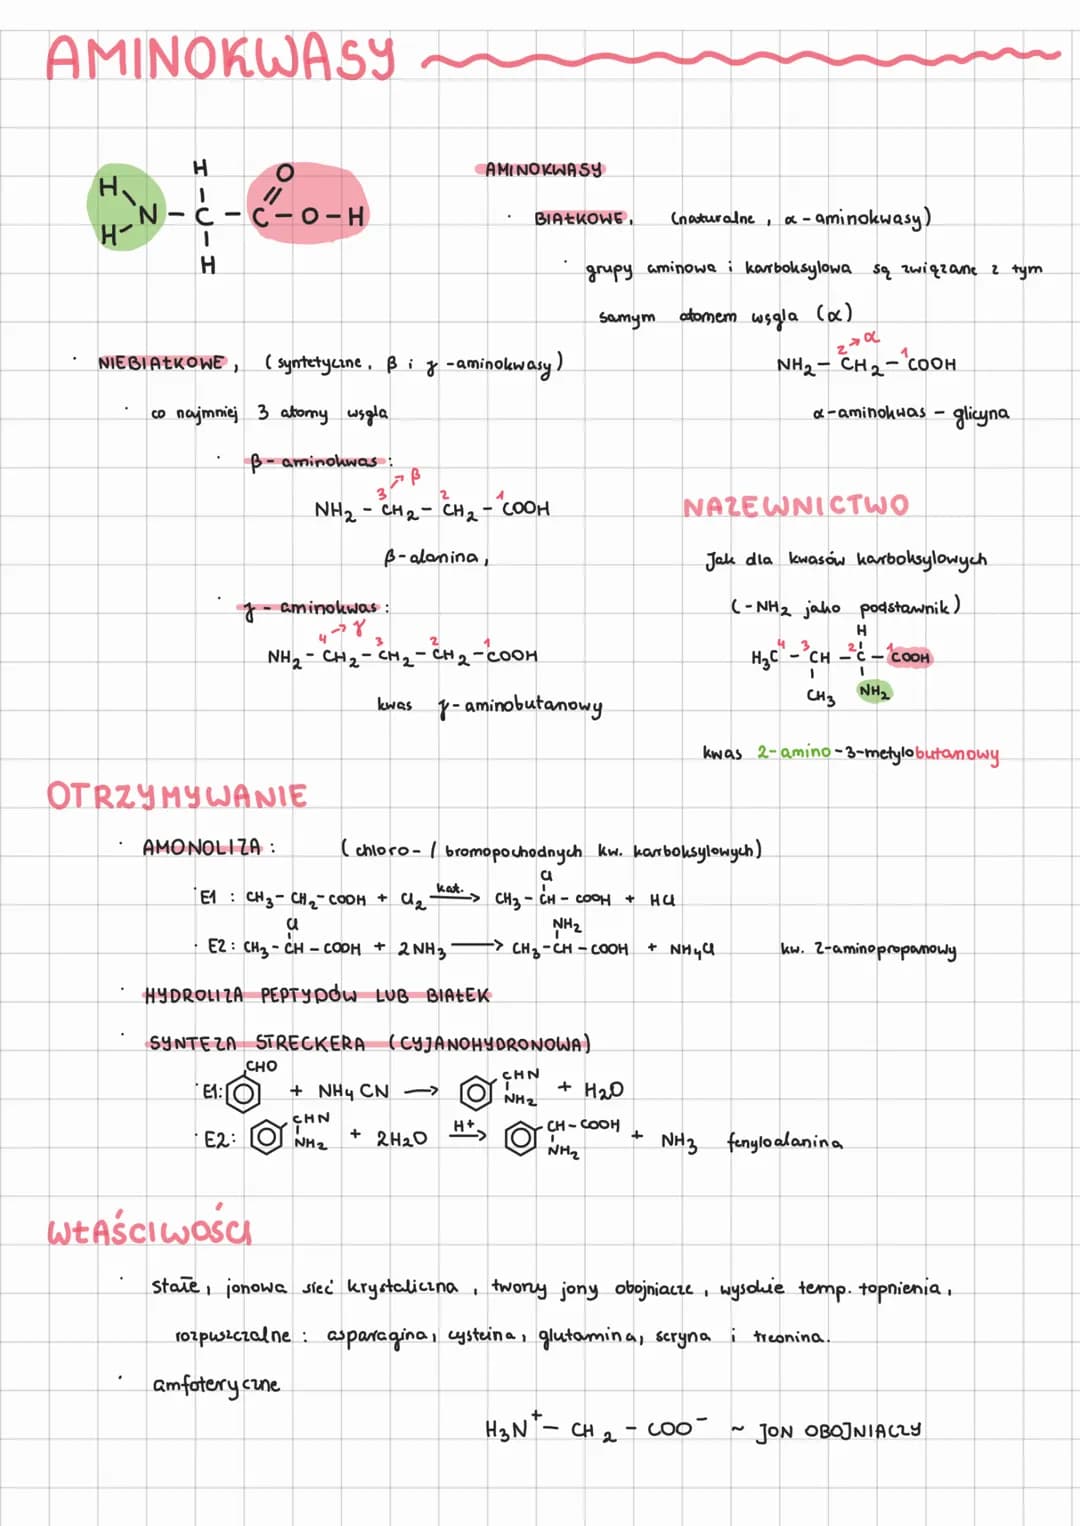 AMINOKWASY
H H O
N - C - C - O - H
H H
AMINOKWASY
· BIAŁKOWE, (naturalne, α - aminokwasy)
· grupy aminowa i karboksylowa są związane z tym
samym atomem węgla (α)
2→α 1
NH2 - CH2 - COOH
α-aminokwas - glicyna
· NIEBIAŁKOWE, (syntetyczne, β i γ -aminokwasy)
· co najmniej 3 atomy węgla
· β- aminokwas :
3→β 2 1
NH2 - CH2 - CH2 - COOH
β-alanina,
· γ - aminokwas :
4→γ 3 2 1
NH2 - CH2 - CH2 - CH2 - COOH
kwas γ-aminobutanowy
NAZEWNICTWO
Jak dla kwasów karboksylowych
(-NH2 jako podstawnik)
H
4 3 2 1
H3C - CH - C - COOH
CH3 NH2
kwas 2-amino-3-metylobutanowy
OTRZYMYWANIE
· AMONOLIZA : (chloro- / bromopochodnych kw. karboksylowych)
Cl
· E1 : CH3 - CH2 - COOH + Cl2 kat.→ CH3 - CH - COOH + HCl
Cl NH2
· E2 : CH3 - CH - COOH + 2NH3 → CH3 - CH - COOH + NH4Cl kw. 2-aminopropanowy
· HYDROLIZA PEPTYDÓW LUB BIAŁEK
· SYNTEZA STRECKERA (CYJANOHYDRONOWA)
CHO CHN
· E1: + NH4CN → NH2 + H2O
CHN CH-COOH
· E2: NH2 + 2H2O H+→ NH2 + NH3 fenyloalanina
WŁAŚCIWOŚCI
· stałe, jonowa sieć krystaliczna, tworzy jony obojniacze, wysokie temp. topnienia,
rozpuszczalne : asparagina, cysteina, glutamina, seryna i treonina.
· amfoteryczne
H3N+ - CH2 - COO- ~ JON OBOJNIACZY